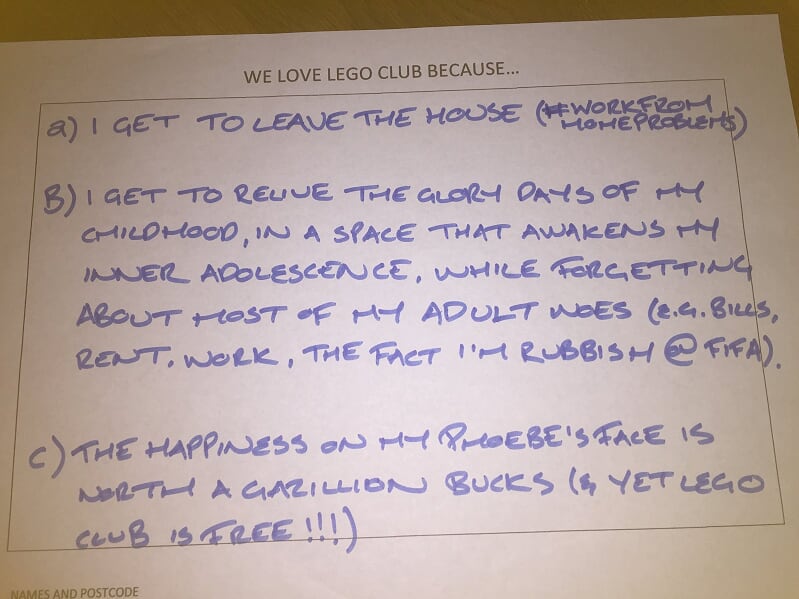 WE LOVE LEGO CLUB BECAUSE...
a) I GET TO LEAVE THE HOUSE (#WORKFROM
HOMEPROBLEMS)
B) I GET TO RELIVE THE GLORY DAYS OF MY
CHILDHOOD, IN A SPACE THAT AWAKENS MY
INNER ADOLESCENCE, WHILE FORGETTING
ABOUT MOST OF MY ADULT WOES (e.G. BILLS,
RENT, WORK, THE FACT I'M RUBBISH @ FIFA).
C) THE HAPPINESS ON MY PHOEBE'S FACE IS
WORTH A GAZILLION BUCKS (& YET LEGO
CLUB IS FREE!!!)
NAMES AND POSTCODE